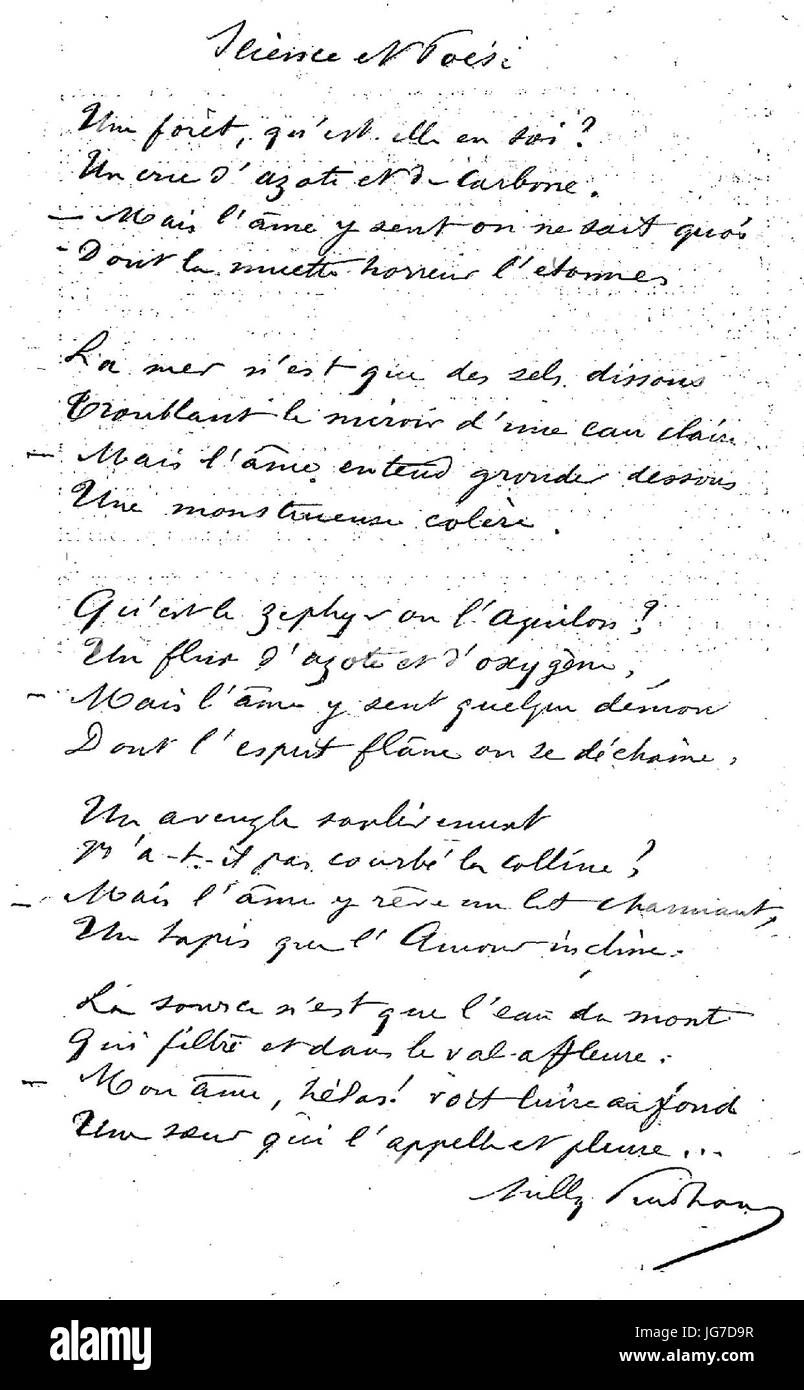 Science et Poési
Une forêt, qu'est-elle en soi ?
Un d'azote et de carbone.
— Mais l'âme y sent on ne sait quoi
- Dont la muette horreur l'étonne
La mer n'est que des sels dissous
Troublant le miroir d'une eau claire
— Mais l'âme entend gronder dessous
Une monstrueuse colère.
Qu'est le zephyr ou l'Aquilon ?
Un flux d'azote et d'oxygène,
— Mais l'âme y sent quelque démon
Dont l'esprit flâne ou se déchaîne,
Un aveugle soulèvement
N'a-t-il pas courbé la colline ?
— Mais l'âme y rêve un lit charmant,
Un tapis que l'Amour incline.
La source n'est que l'eau du mont
Qui filtre et dans le val affleure.
— Mon âme, hélas ! voit luire au fond
Une sœur qui l'appelle et pleure...
Sully Prudhomme
alamy
Image ID: JG7D9R
www.alamy.com